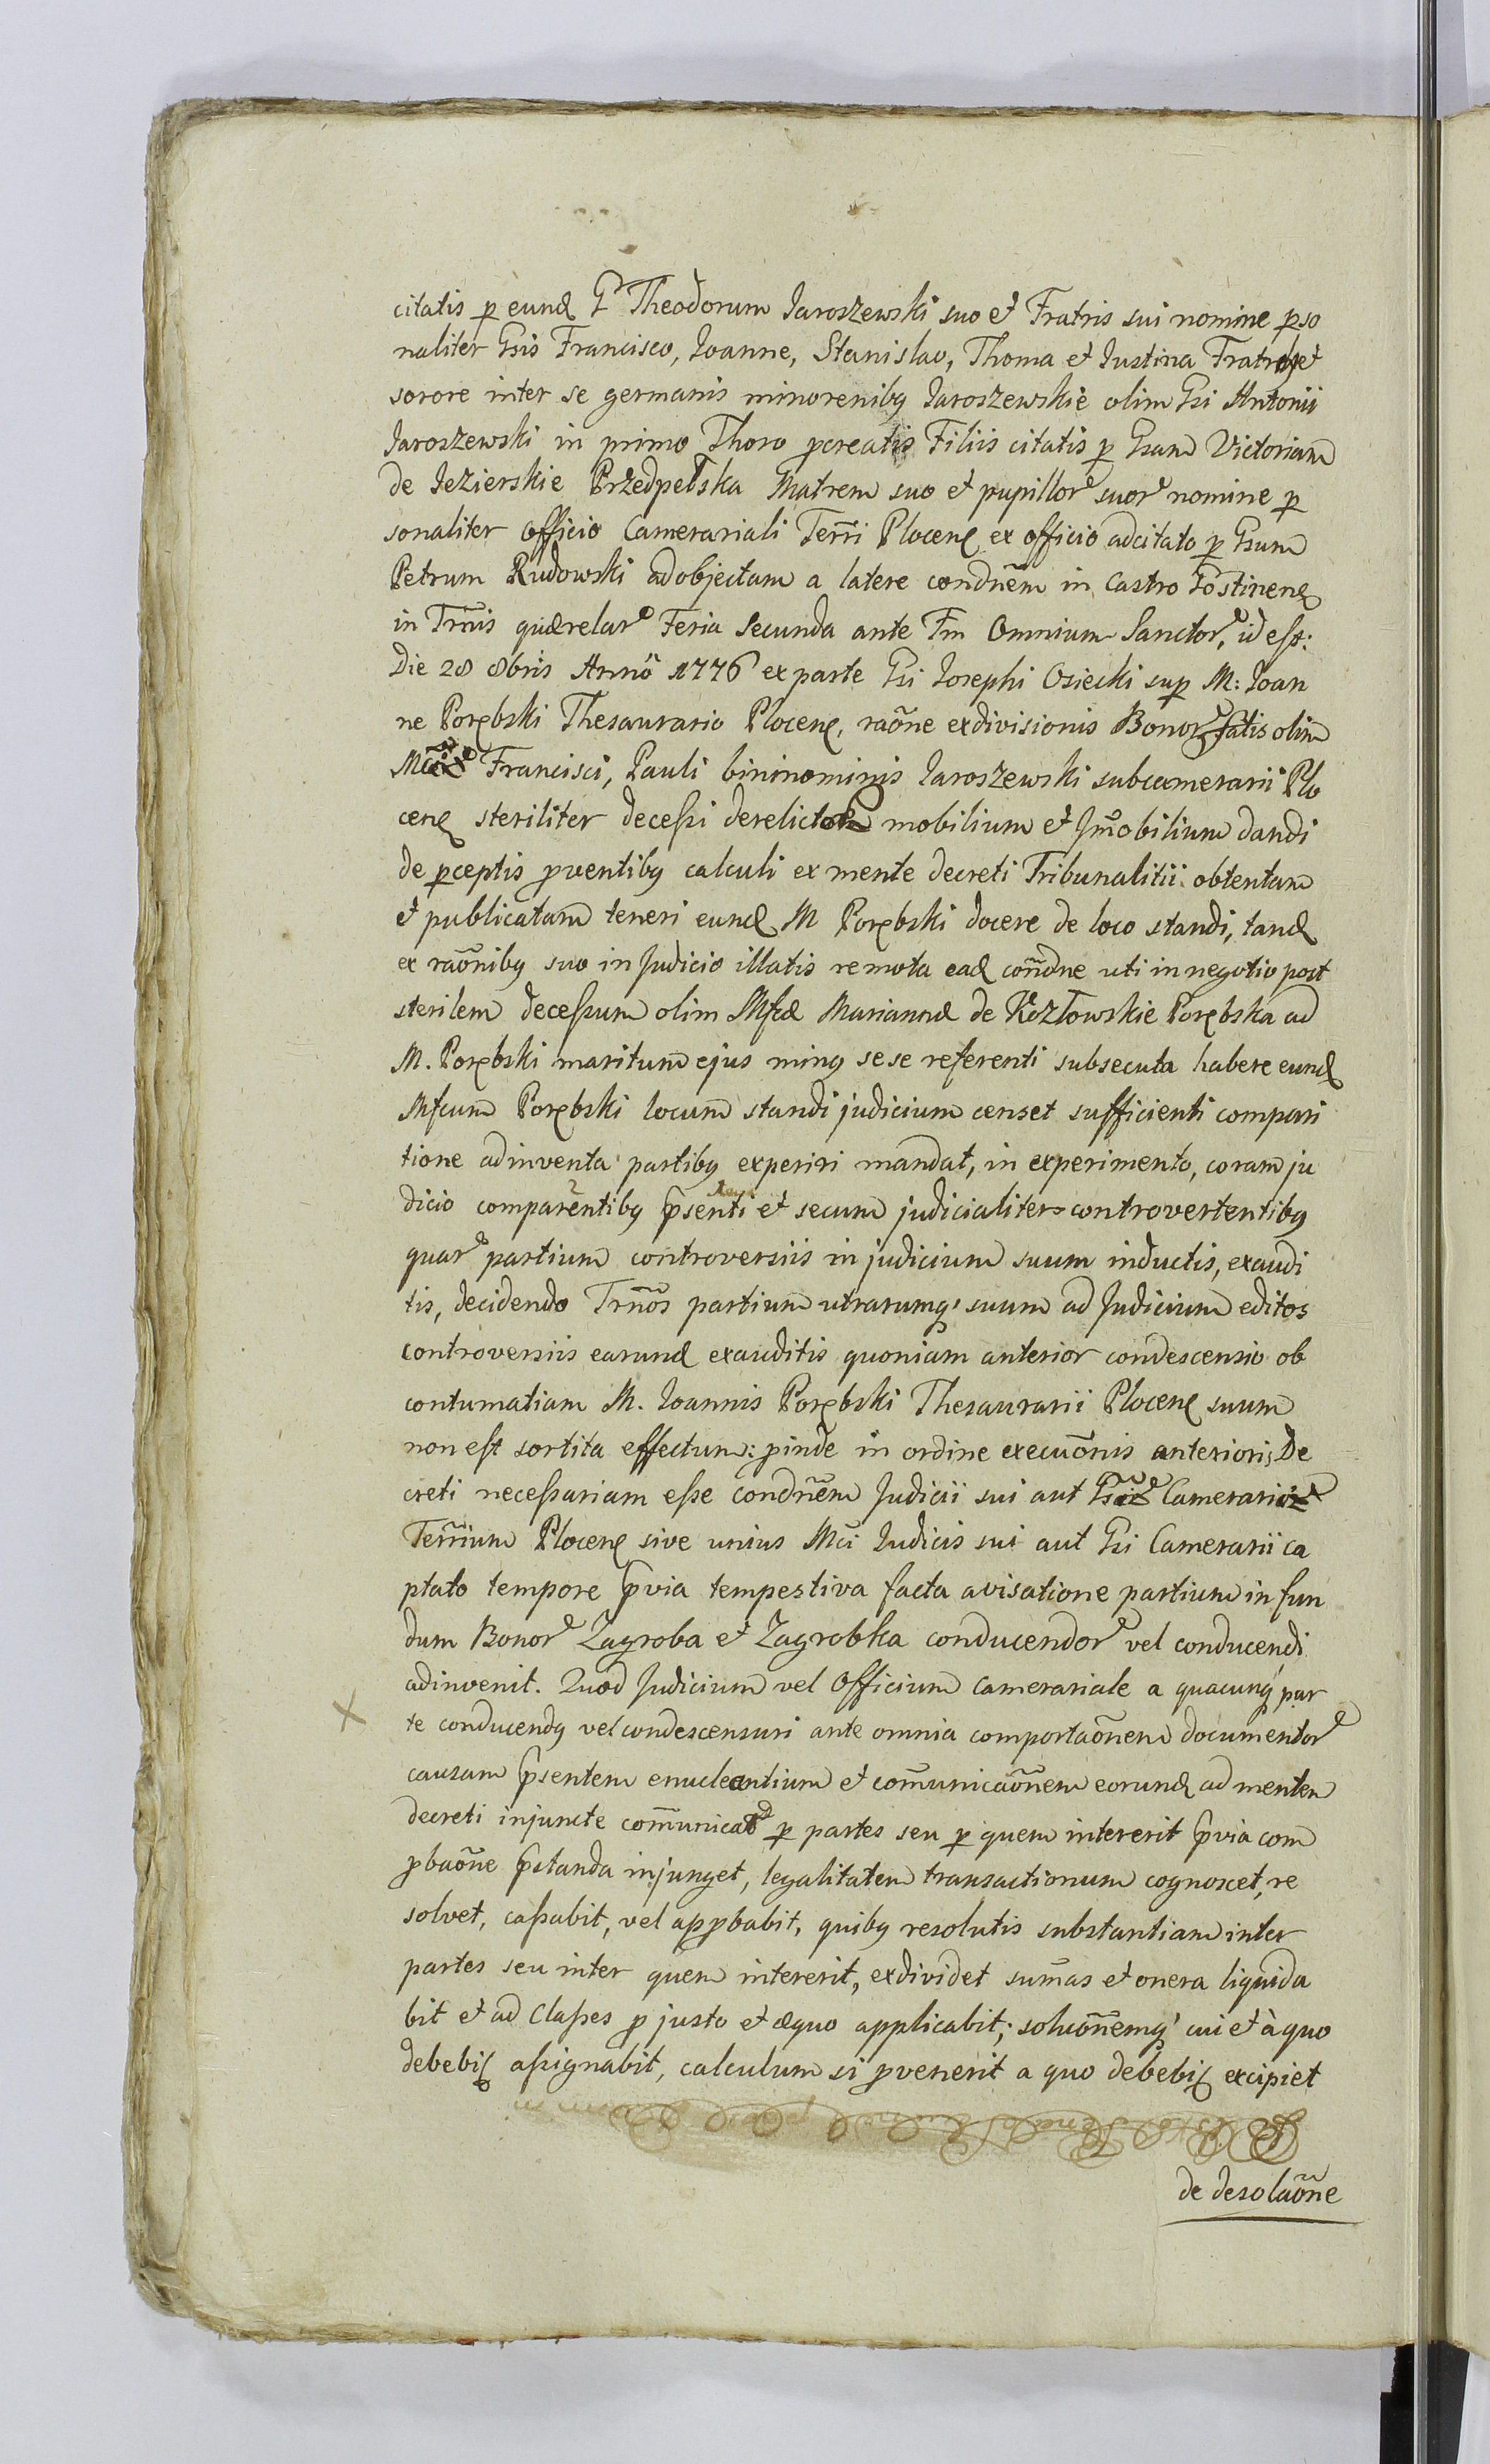 citatis p eund G Theodorum Jaroszewski suo et Fratris sui nomine pso
naliter Gsis Francisco, Joanne, Stanislao, Thoma et Justina Fratrib9 et
sorore inter se germanis minorenib9 Jaroszewskie olim Gsi Antonii
Jaroszewski in primo Thoro pcreatis Filiis citatis p Gsam Victoriam
de Jezierskie Przedpełska Matrem suo et pupillor suor nomine p
sonaliter officio Camerariali Terri Plocens ex officio adcitato p Gsum
Petrum Rudowski ad objectam a latere condnẽm in Castro Gostinens
in Trm̃is quærelar Feria Secunda ante Fm Omnium Sanctor, id est:
Die 28 8bris Anno 1776 ex parte Gsi Josephi Osiecki sup M: Joan
ne Porębski Thesaurario Plocens, raõne exdivisionis Bonor fatis olim
Francisci, Pauli bininominis Jaroszewski subcamerarii Plo
cens steriliter decessi derelictor mobilium et Jm̃obilium dandi
de pceptis pventib9 calculi ex mente decreti Tribunalitii obtentam
et publicatam teneri eund M Porębski docere de loco standi, tand
ex raõnib9 suo in Judicio illatis remota ead cond̃ne uti in negotio post
sterilem decessum olim Mfcæ Mariannæ de Kozłowskie Porębska ad
M. Porębski maritum ejus min9 sese referenti subsecuta habere eund
Mfcum Porębski locum standi judicium censet sufficienti compari
tione adinventa partib9 experiri mandat, in experimento, coram ju
dicio comparentib9 psenti et secum judicialiter controvertentib9
quar partium controversiis in judicium suum inductis, exaudi
tis, decidendo Trm̃os partium utrarumq, suum ad Judicium editos
controversiis earund exauditis quoniam anterior condescensio ob
contumatiam M. Joannis Porębski Thesaurarii Plocens suum
non est sortita effectum: pinde in ordine execuõnis anterioris De
creti necessariam esse condnẽm Judicii sui aut Camerarior
Terrium Plocens sive unius Mci Judicis sui aut Gsi Camerarii ca
ptato tempore pvia tempestiva facta avisatione partium in fun
dum Bonor Zagroba et Zagrobka conducendor vel conducendi
adinvenit. Quod Judicium vel Officium camerariale a quacunq par
te conducend9 vel condescensuri ante omnia comportaõnem documentor
causam psentem enucleantium et com̃unicaõnem eorund ad mentem
decreti injuncte p partes seu p quem intererit pvia com
pbaõne pstanda injunget, legalitatem transactionum cognoscet, re
solvet, cassabit, vel appbabit, quib9 resolutis substantiam inter
partes seu inter quem intererit, exdividet sum̃as et onera liquida
bit et ad Classes p justo et æquo applicabit; soluõnemq, cui et à quo
debebit assignabit, calculum si pvenerit a quo debebit excipiet
de desolaõne